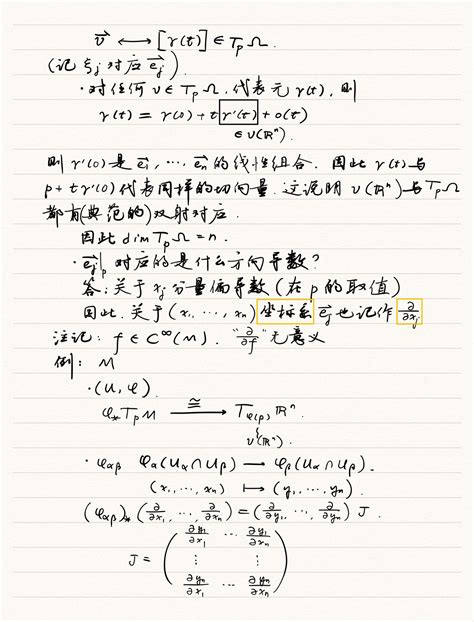 v⃗ ⟷ [γ(t)] ∈ T_pΩ.
(记 ξ_j 对应 e⃗_j).
· 对任何 v ∈ T_pΩ, 代表元 γ(t), 则
γ(t) = γ(0) + t γ'(t) + o(t)
∈ V(ℝⁿ).
则 γ'(0) 是 e⃗_1, ⋯, e⃗_n 的线性组合. 因此 γ(t) 与
p + t γ'(0) 代表同样的切向量. 这说明 V(ℝⁿ) 与 T_pΩ
都有(典范的)双射对应.
因此 dim T_pΩ = n.
· e⃗_j|_p 对应的是什么方向导数?
答: 关于 x_j 分量偏导数 (在 p 的取值)
因此, 关于 (x_1, ⋯, x_n) 坐标系 e⃗_j 也记作 ∂/∂x_j
注记: f ∈ C^∞(M), "∂/∂f" 无意义
例: M
· (U, φ).
φ_* T_pM ≅⟹ T_{φ(p)} ℝⁿ.
V(ℝⁿ).
· φ_{αβ} φ_α(U_α ∩ U_β) ⟶ φ_β(U_α ∩ U_β).
(x_1, ⋯, x_n) ⟼ (y_1, ⋯, y_n).
(φ_{αβ})_* (∂/∂x_1, ⋯, ∂/∂x_n) = (∂/∂y_1, ⋯, ∂/∂y_n) J.
J = ( ∂y_1/∂x_1 ⋯ ∂y_1/∂x_n
⋮ ⋮
∂y_n/∂x_1 ⋯ ∂y_n/∂x_n )